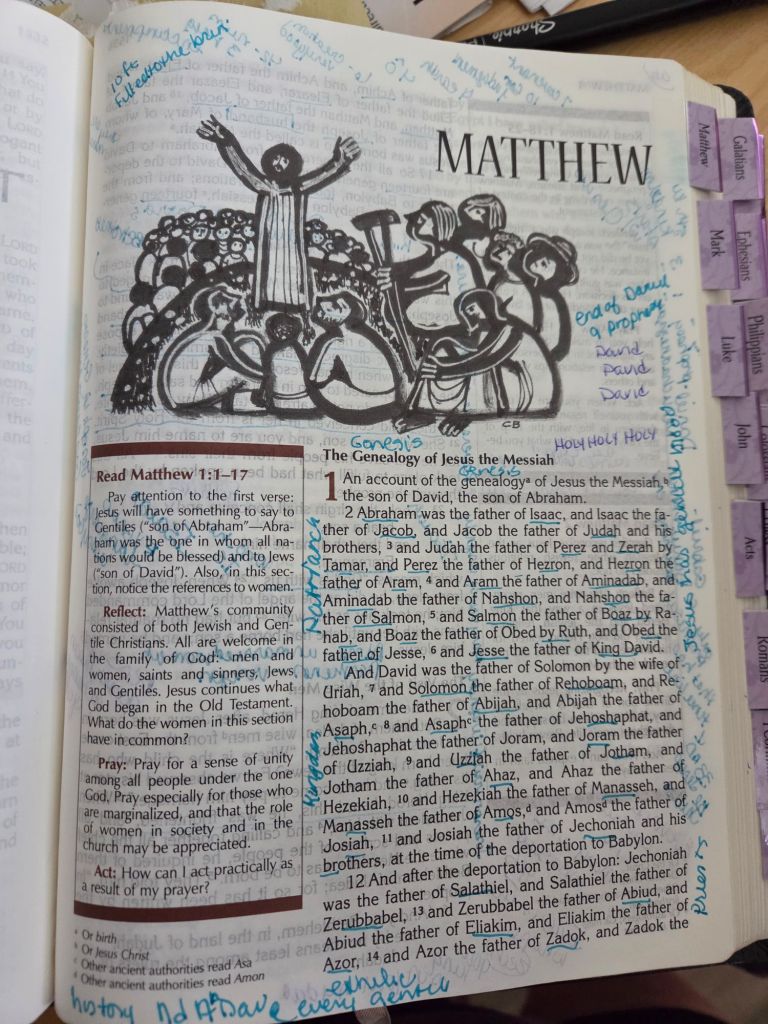 10 ft
MATTHEW
Matthew
Galatians
Mark
Ephesians
Luke
Philippians
John
Acts
Romans
end of David
9 prophets
David
David
David
HOLY HOLY HOLY
CB
Genesis
The Genealogy of Jesus the Messiah
Genesis
1 An account of the genealogyᵃ of Jesus the Messiah,ᵇ
the son of David, the son of Abraham.
2 Abraham was the father of Isaac, and Isaac the fa-
ther of Jacob, and Jacob the father of Judah and his
brothers, ³ and Judah the father of Perez and Zerah by
Tamar, and Perez the father of Hezron, and Hezron the
father of Aram, ⁴ and Aram the father of Aminadab, and
Aminadab the father of Nahshon, and Nahshon the fa-
ther of Salmon, ⁵ and Salmon the father of Boaz by Ra-
hab, and Boaz the father of Obed by Ruth, and Obed the
father of Jesse, ⁶ and Jesse the father of King David.
And David was the father of Solomon by the wife of
Uriah, ⁷ and Solomon the father of Rehoboam, and Re-
hoboam the father of Abijah, and Abijah the father of
Asaph,ᶜ ⁸ and Asaphᶜ the father of Jehoshaphat, and
Jehoshaphat the father of Joram, and Joram the father
of Uzziah, ⁹ and Uzziah the father of Jotham, and
Jotham the father of Ahaz, and Ahaz the father of
Hezekiah, ¹⁰ and Hezekiah the father of Manasseh, and
Manasseh the father of Amos,ᵈ and Amosᵈ the father of
Josiah, ¹¹ and Josiah the father of Jechoniah and his
brothers, at the time of the deportation to Babylon.
12 And after the deportation to Babylon: Jechoniah
was the father of Salathiel, and Salathiel the father of
Zerubbabel, ¹³ and Zerubbabel the father of Abiud, and
Abiud the father of Eliakim, and Eliakim the father of
Azor, ¹⁴ and Azor the father of Zadok, and Zadok the
Read Matthew 1:1–17
Pay attention to the first verse:
Jesus will have something to say to
Gentiles ("son of Abraham"—Abra-
ham was the one in whom all na-
tions would be blessed) and to Jews
("son of David"). Also, in this sec-
tion, notice the references to women.
Reflect: Matthew's community
consisted of both Jewish and Gen-
tile Christians. All are welcome in
the family of God: men and
women, saints and sinners, Jews
and Gentiles. Jesus continues what
God began in the Old Testament.
What do the women in this section
have in common?
Pray: Pray for a sense of unity
among all people under the one
God. Pray especially for those who
are marginalized, and that the role
of women in society and in the
church may be appreciated.
Act: How can I act practically as
a result of my prayer?
ᵃ Or birth
ᵇ Or Jesus Christ
ᶜ Other ancient authorities read Asa
ᵈ Other ancient authorities read Amon
Patriarch
Kingdom
Jesus has gentile blood
Priests
history
every gentile